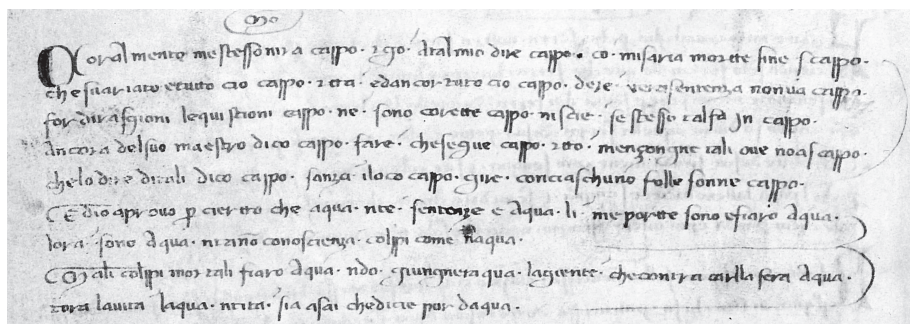 Mo
Moralmente me stesso mira cappo · 2 go · dral mio dire cappo · co · misaria mortte sine scappo ·
che suariato e tutto cio cappo · 2tta · ed ancor tuto cio cappo · deze · vera sentenza non ua cappo ·
for dira sgioni le quistioni cappo · ne · sono corette cappo · niscie · se stesso talfa in cappo ·
Ancora del suo maestro dico cappo · fare · che segue cappo · 2tto · mençongne tali oue noa scappo ·
che lo dire di tali dico cappo · sanza iloco cappo · gire · conciaschuno folle sonne cappo ·
E dio aprouo p cierto che aqua · nte · sentenze e aqua · li · me portte sono e fiaro aqua ·
lora · sono aqua · ntano conoscienza colppi come naqua ·
Mali colppi mortali fiaro aqua · ndo · giungnera qua · la giente · che contra carlla sera aqua ·
tora la uita laqua · ntita · sia asai che dicie pur daqua ·